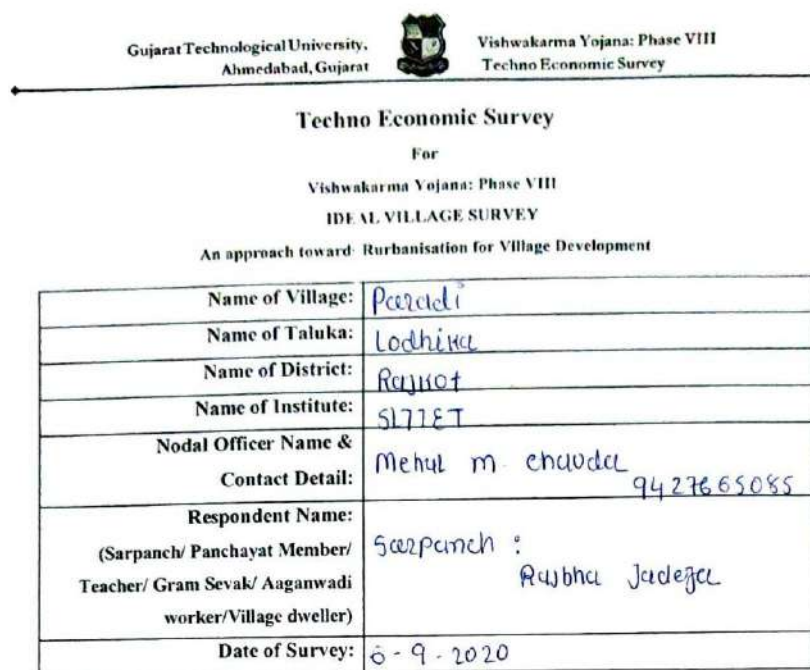 Gujarat Technological University,
Ahmedabad, Gujarat
Vishwakarma Yojana: Phase VIII
Techno Economic Survey
Techno Economic Survey
For
Vishwakarma Yojana: Phase VIII
IDEAL VILLAGE SURVEY
An approach toward Rurbanisation for Village Development
Name of Village: Paradi
Name of Taluka: Lodhika
Name of District: Rajkot
Name of Institute: SLTIET
Nodal Officer Name &
Contact Detail:
Mehul m. chavda
9427665085
Respondent Name:
(Sarpanch/ Panchayat Member/
Teacher/ Gram Sevak/ Aaganwadi
worker/Village dweller)
Sarpanch :
Rajbha Jadeja
Date of Survey: 6-9-2020